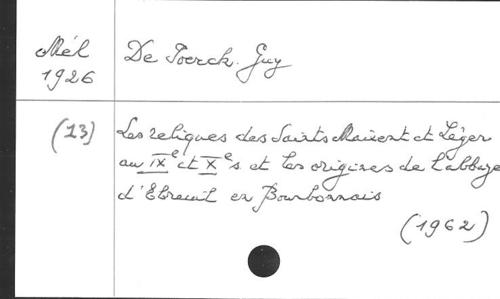 Mél De Poerck. Guy
1926
(13) Les reliques des Saints Maixent et Léger
au IXe et Xe s et les origines de l'abbaye
d'Ebreuil en Bourbonnais
(1962)